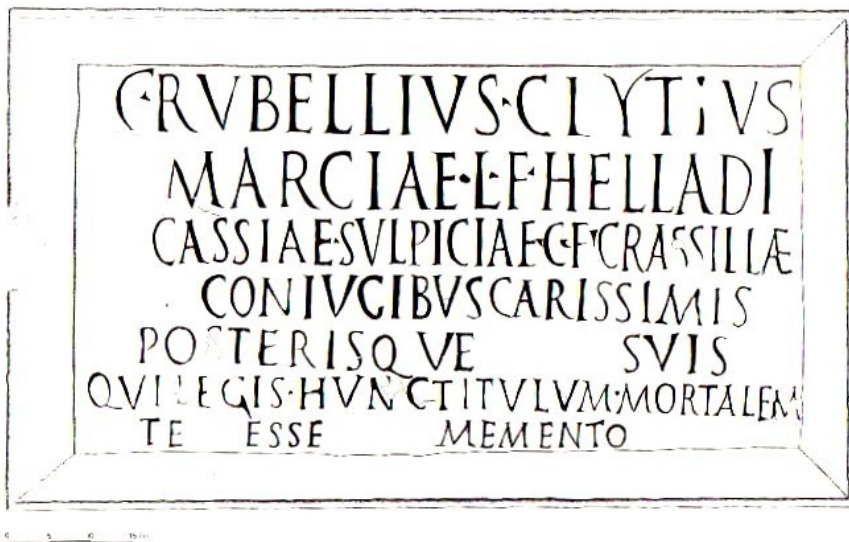 C·RVBELLIVS·CLYTIVS
MARCIAE·L·F·HELLADI
CASSIAE·SVLPICIAE·C·F·CRASSILLÆ
CONIVGIBVS CARISSIMIS
POSTERISQVE SVIS
QVI LEGIS·HVNC TITVLVM·MORTALEM
TE ESSE MEMENTO
0 5 10 15